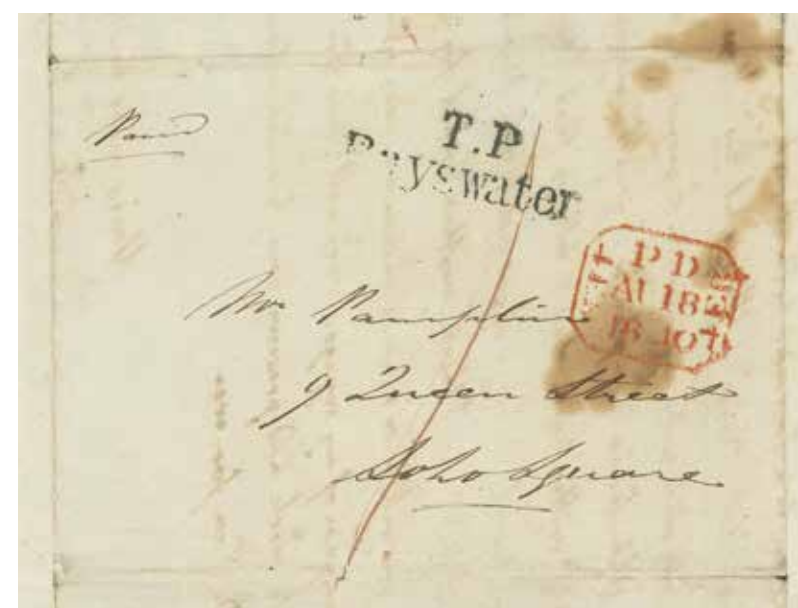 Paid
T.P
Bayswater
PD
AU 18
1840
Mr Pamplin
9 Queen Street
Soho Square